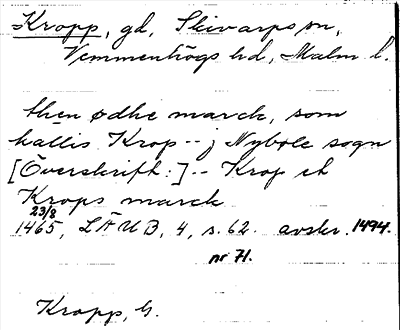 Kropp, gd, Skivarps sn,
Vemmenhögs hd, Malm. l.
then ødhe marck, som
kallis Krop -- j Nybøle sogn
[Överskrift:] -- Krop et
Krops marck
23/8
1465, LÄUB, 4, s. 62. avskr. 1494.
nr 71.
Kropp, G.